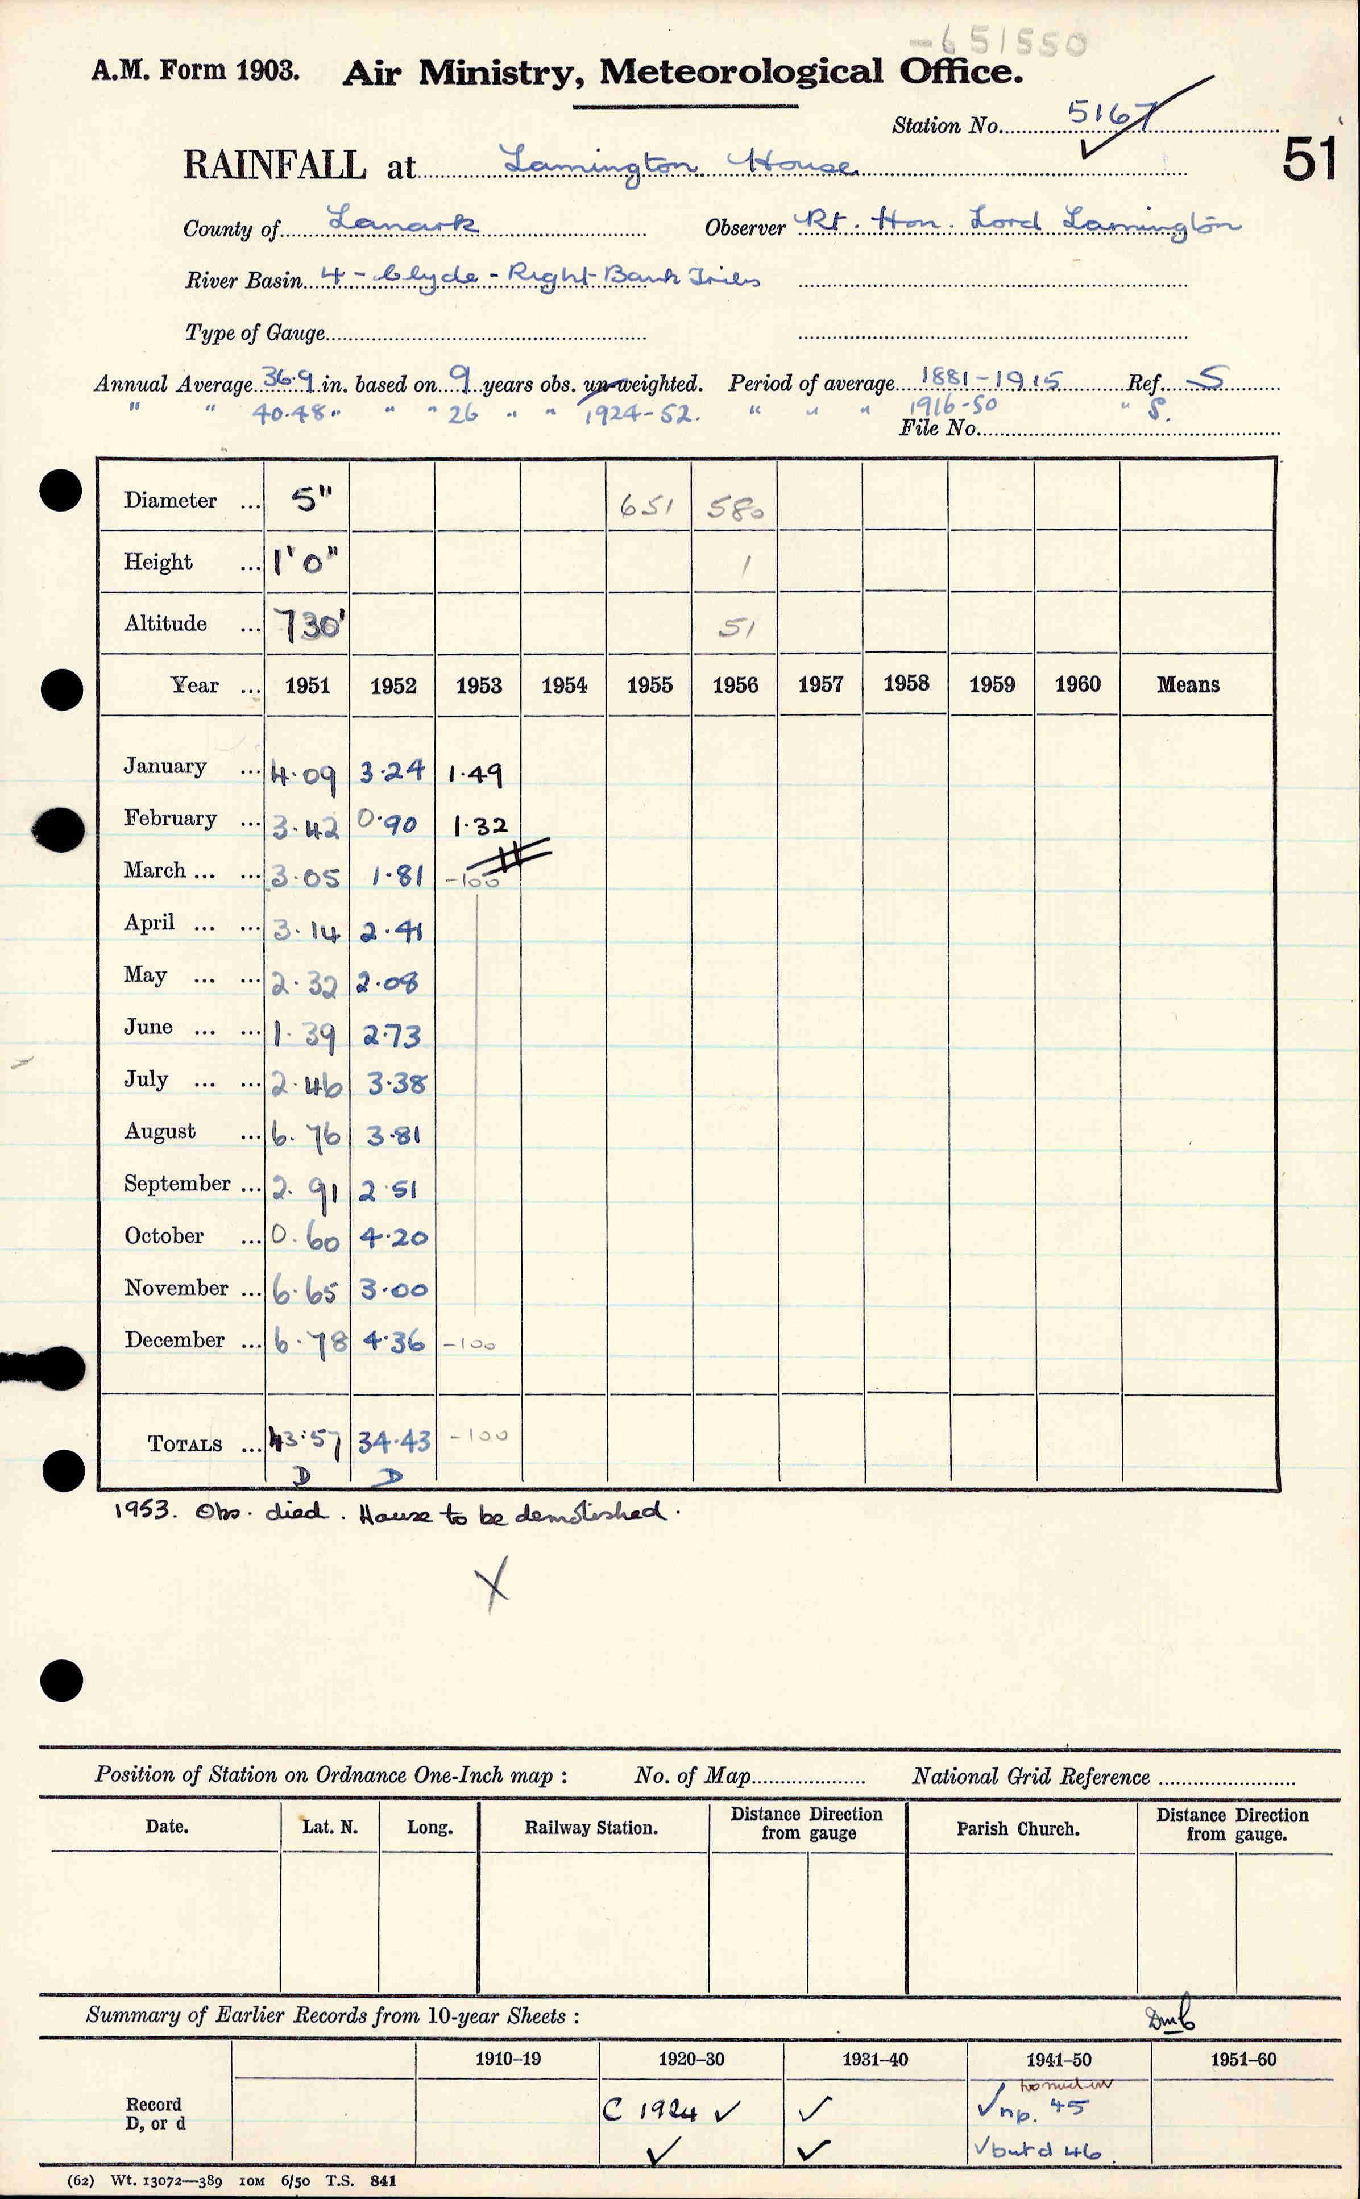 -651550
A.M. Form 1903. Air Ministry, Meteorological Office.
Station No. 5167
51
RAINFALL at Lamington House
County of Lanark Observer Rt. Hon. Lord Lamington
River Basin 4 - Clyde - Right Bank Tribs
Type of Gauge
Annual Average 36.9 in. based on 9 years obs. un-weighted. Period of average 1881-1915 Ref. S
" " 40.48 " " " 26 " " 1924-52. " " " 1916-50 " S.
File No.
Diameter ... 5" 651 580
Height ... 1'0" 1
Altitude ... 730' 51
Year ... 1951 1952 1953 1954 1955 1956 1957 1958 1959 1960 Means
January ... 4.09 3.24 1.49
February ... 3.42 0.90 1.32
March ... ... 3.05 1.81 -100
April ... ... 3.14 2.41
May ... ... 2.32 2.08
June ... ... 1.39 2.73
July ... ... 2.46 3.38
August ... 6.76 3.81
September ... 2.91 2.51
October ... 0.60 4.20
November ... 6.65 3.00
December ... 6.78 4.36 -100
TOTALS ... 43.57 34.43 -100
D D
1953. Obs. died. House to be demolished.
X
Position of Station on Ordnance One-Inch map : No. of Map National Grid Reference
Date. Lat. N. Long. Railway Station. Distance Direction from gauge Parish Church. Distance Direction from gauge.
Summary of Earlier Records from 10-year Sheets :
1910-19 1920-30 1931-40 1941-50 1951-60
Record C 1924 ✓ ✓ ✓ np. 45
D, or d ✓ ✓ ✓ but d 46.
(62) Wt. 13072—389 10M 6/50 T.S. 841